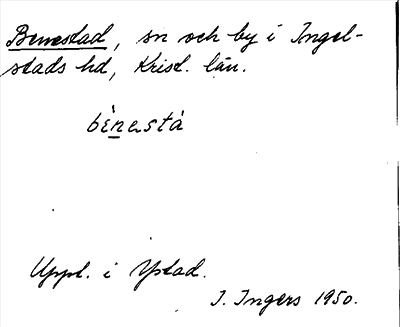 Benestad, sn och by i Ingel-
stads hd, Krist. län.
bènestà
Uppt. i Ystad.
I. Ingers 1950.